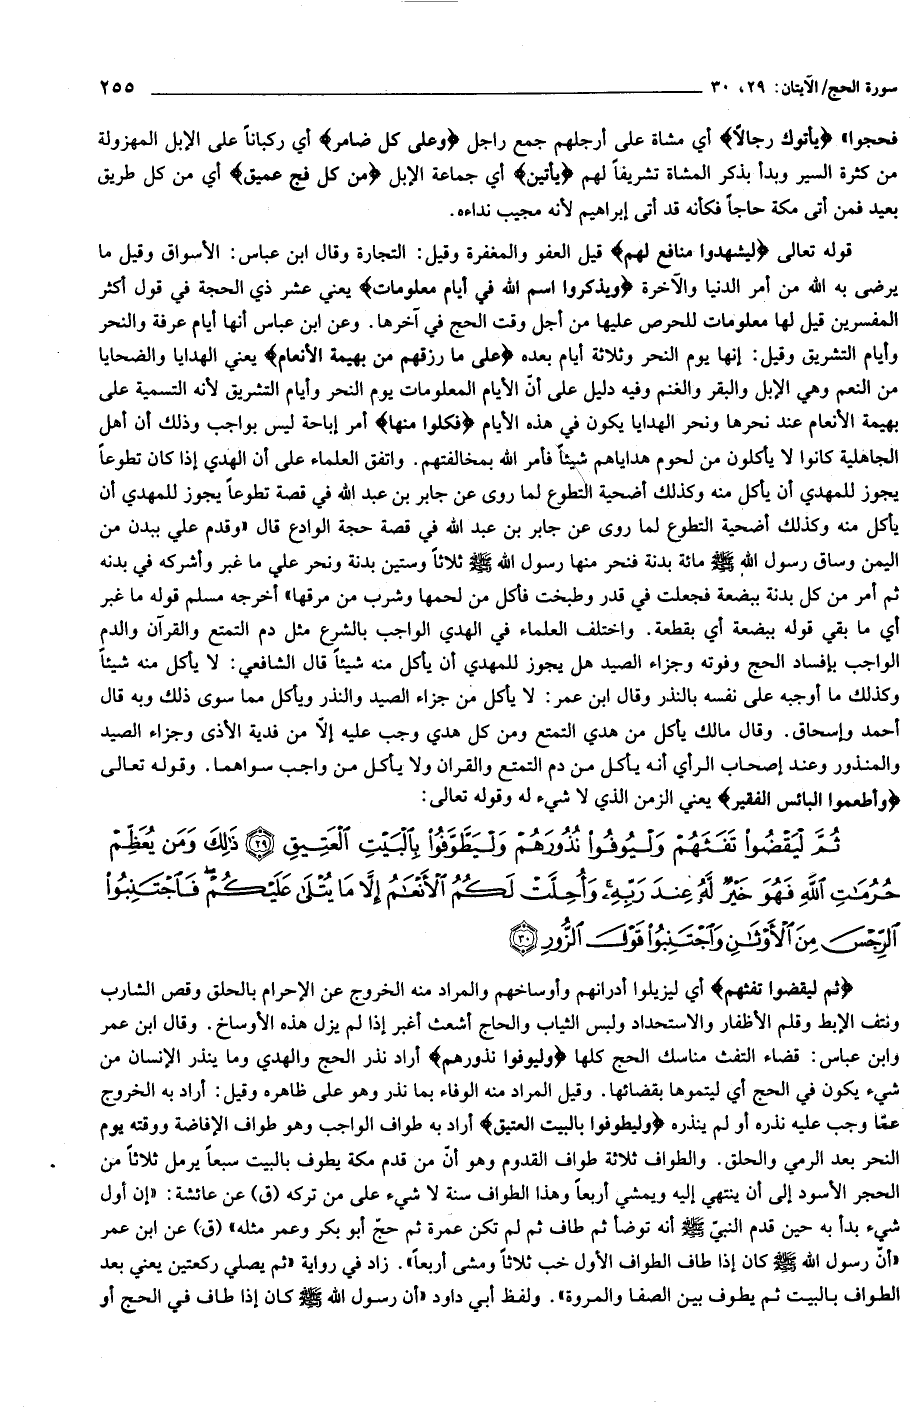 سورة الحج/ الآيتان: ٢٩، ٣٠ ٢٥٥
فحجوا» ﴿يأتوك رجالاً﴾ أي مشاة على أرجلهم جمع راجل ﴿وعلى كل ضامر﴾ أي ركباناً على الإبل المهزولة
من كثرة السير وبدأ بذكر المشاة تشريفاً لهم ﴿يأتين﴾ أي جماعة الإبل ﴿من كل فج عميق﴾ أي من كل طريق
بعيد فمن أتى مكة حاجاً فكأنه قد أتى إبراهيم لأنه مجيب نداءه.
قوله تعالى ﴿ليشهدوا منافع لهم﴾ قيل العفو والمغفرة وقيل: التجارة وقال ابن عباس: الأسواق وقيل ما
يرضى به الله من أمر الدنيا والآخرة ﴿ويذكروا اسم الله في أيام معلومات﴾ يعني عشر ذي الحجة في قول أكثر
المفسرين قيل لها معلومات للحرص عليها من أجل وقت الحج في آخرها. وعن ابن عباس أنها أيام عرفة والنحر
وأيام التشريق وقيل: إنها يوم النحر وثلاثة أيام بعده ﴿على ما رزقهم من بهيمة الأنعام﴾ يعني الهدايا والضحايا
من النعم وهي الإبل والبقر والغنم وفيه دليل على أنّ الأيام المعلومات يوم النحر وأيام التشريق لأنه التسمية على
بهيمة الأنعام عند نحرها ونحر الهدايا يكون في هذه الأيام ﴿فكلوا منها﴾ أمر إباحة ليس بواجب وذلك أن أهل
الجاهلية كانوا لا يأكلون من لحوم هداياهم شيئاً فأمر الله بمخالفتهم. واتفق العلماء على أن الهدي إذا كان تطوعاً
يجوز للمهدي أن يأكل منه وكذلك أضحية التطوع لما روى عن جابر بن عبد الله في قصة تطوعاً يجوز للمهدي أن
يأكل منه وكذلك أضحية التطوع لما روى عن جابر بن عبد الله في قصة حجة الوادع قال «وقدم علي ببدن من
اليمن وساق رسول الله ﷺ مائة بدنة فنحر منها رسول الله ﷺ ثلاثاً وستين بدنة ونحر علي ما غبر وأشركه في بدنه
ثم أمر من كل بدنة ببضعة فجعلت في قدر وطبخت فأكل من لحمها وشرب من مرقها» أخرجه مسلم قوله ما غبر
أي ما بقي قوله ببضعة أي بقطعة. واختلف العلماء في الهدي الواجب بالشرع مثل دم التمتع والقرآن والدم
الواجب بإفساد الحج وفوته وجزاء الصيد هل يجوز للمهدي أن يأكل منه شيئاً قال الشافعي: لا يأكل منه شيئاً
وكذلك ما أوجبه على نفسه بالنذر وقال ابن عمر: لا يأكل من جزاء الصيد والنذر ويأكل مما سوى ذلك وبه قال
أحمد وإسحاق. وقال مالك يأكل من هدي التمتع ومن كل هدي وجب عليه إلّا من فدية الأذى وجزاء الصيد
والمنذور وعند إصحاب الرأي أنه يأكل من دم التمتع والقران ولا يأكل من واجب سواهما. وقوله تعالى
﴿وأطعموا البائس الفقير﴾ يعني الزمن الذي لا شيء له وقوله تعالى:
ثُمَّ لْيَقْضُوا۟ تَفَثَهُمْ وَلْيُوفُوا۟ نُذُورَهُمْ وَلْيَطَّوَّفُوا۟ بِٱلْبَيْتِ ٱلْعَتِيقِ ﴿٢٩﴾ ذَٰلِكَ وَمَن يُعَظِّمْ
حُرُمَٰتِ ٱللَّهِ فَهُوَ خَيْرٌ لَّهُۥ عِندَ رَبِّهِۦ وَأُحِلَّتْ لَكُمُ ٱلْأَنْعَٰمُ إِلَّا مَا يُتْلَىٰ عَلَيْكُمْ فَٱجْتَنِبُوا۟
ٱلرِّجْسَ مِنَ ٱلْأَوْثَٰنِ وَٱجْتَنِبُوا۟ قَوْلَ ٱلزُّورِ ﴿٣٠﴾
﴿ثم ليقضوا تفثهم﴾ أي ليزيلوا أدرانهم وأوساخهم والمراد منه الخروج عن الإحرام بالحلق وقص الشارب
ونتف الإبط وقلم الأظفار والاستحداد ولبس الثياب والحاج أشعث أغبر إذا لم يزل هذه الأوساخ. وقال ابن عمر
وابن عباس: قضاء التفث مناسك الحج كلها ﴿وليوفوا نذورهم﴾ أراد نذر الحج والهدي وما ينذر الإنسان من
شيء يكون في الحج أي ليتموها بقضائها. وقيل المراد منه الوفاء بما نذر وهو على ظاهره وقيل: أراد به الخروج
عمّا وجب عليه نذره أو لم ينذره ﴿وليطوفوا بالبيت العتيق﴾ أراد به طواف الواجب وهو طواف الإفاضة ووقته يوم
النحر بعد الرمي والحلق. والطواف ثلاثة طواف القدوم وهو أنّ من قدم مكة يطوف بالبيت سبعاً يرمل ثلاثاً من
الحجر الأسود إلى أن ينتهي إليه ويمشي أربعاً وهذا الطواف سنة لا شيء على من تركه (ق) عن عائشة: «إن أول
شيء بدأ به حين قدم النبيّ ﷺ أنه توضأ ثم طاف ثم لم تكن عمرة ثم حجّ أبو بكر وعمر مثله» (ق) عن ابن عمر
«أنّ رسول الله ﷺ كان إذا طاف الطواف الأول خب ثلاثاً ومشى أربعاً». زاد في رواية «ثم يصلي ركعتين يعني بعد
الطواف بالبيت ثم يطوف بين الصفا والمروة». ولفظ أبي داود «أن رسول الله ﷺ كان إذا طاف في الحج أو